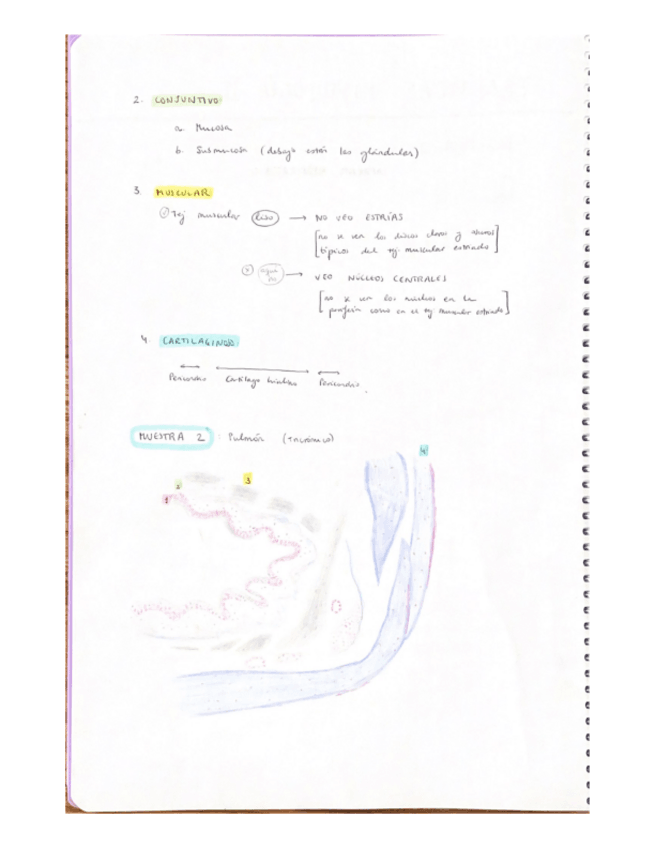 2. CONJUNTIVO
a. Mucosa
b. Submucosa (debajo están las glándulas)
3. MUSCULAR
① Tej muscular liso → NO VEO ESTRÍAS
[no se ven los discos claros y oscuros
típicos del tej muscular estriado]
② → VEO NÚCLEOS CENTRALES
[no se ven los núcleos en la
como en el tej muscular estriado]
4. CARTILAGINOSO:
Pericondrio Cartílago hialino Pericondrio.
MUESTRA 2 : Pulmón (tricrómico)
4
3
2
1